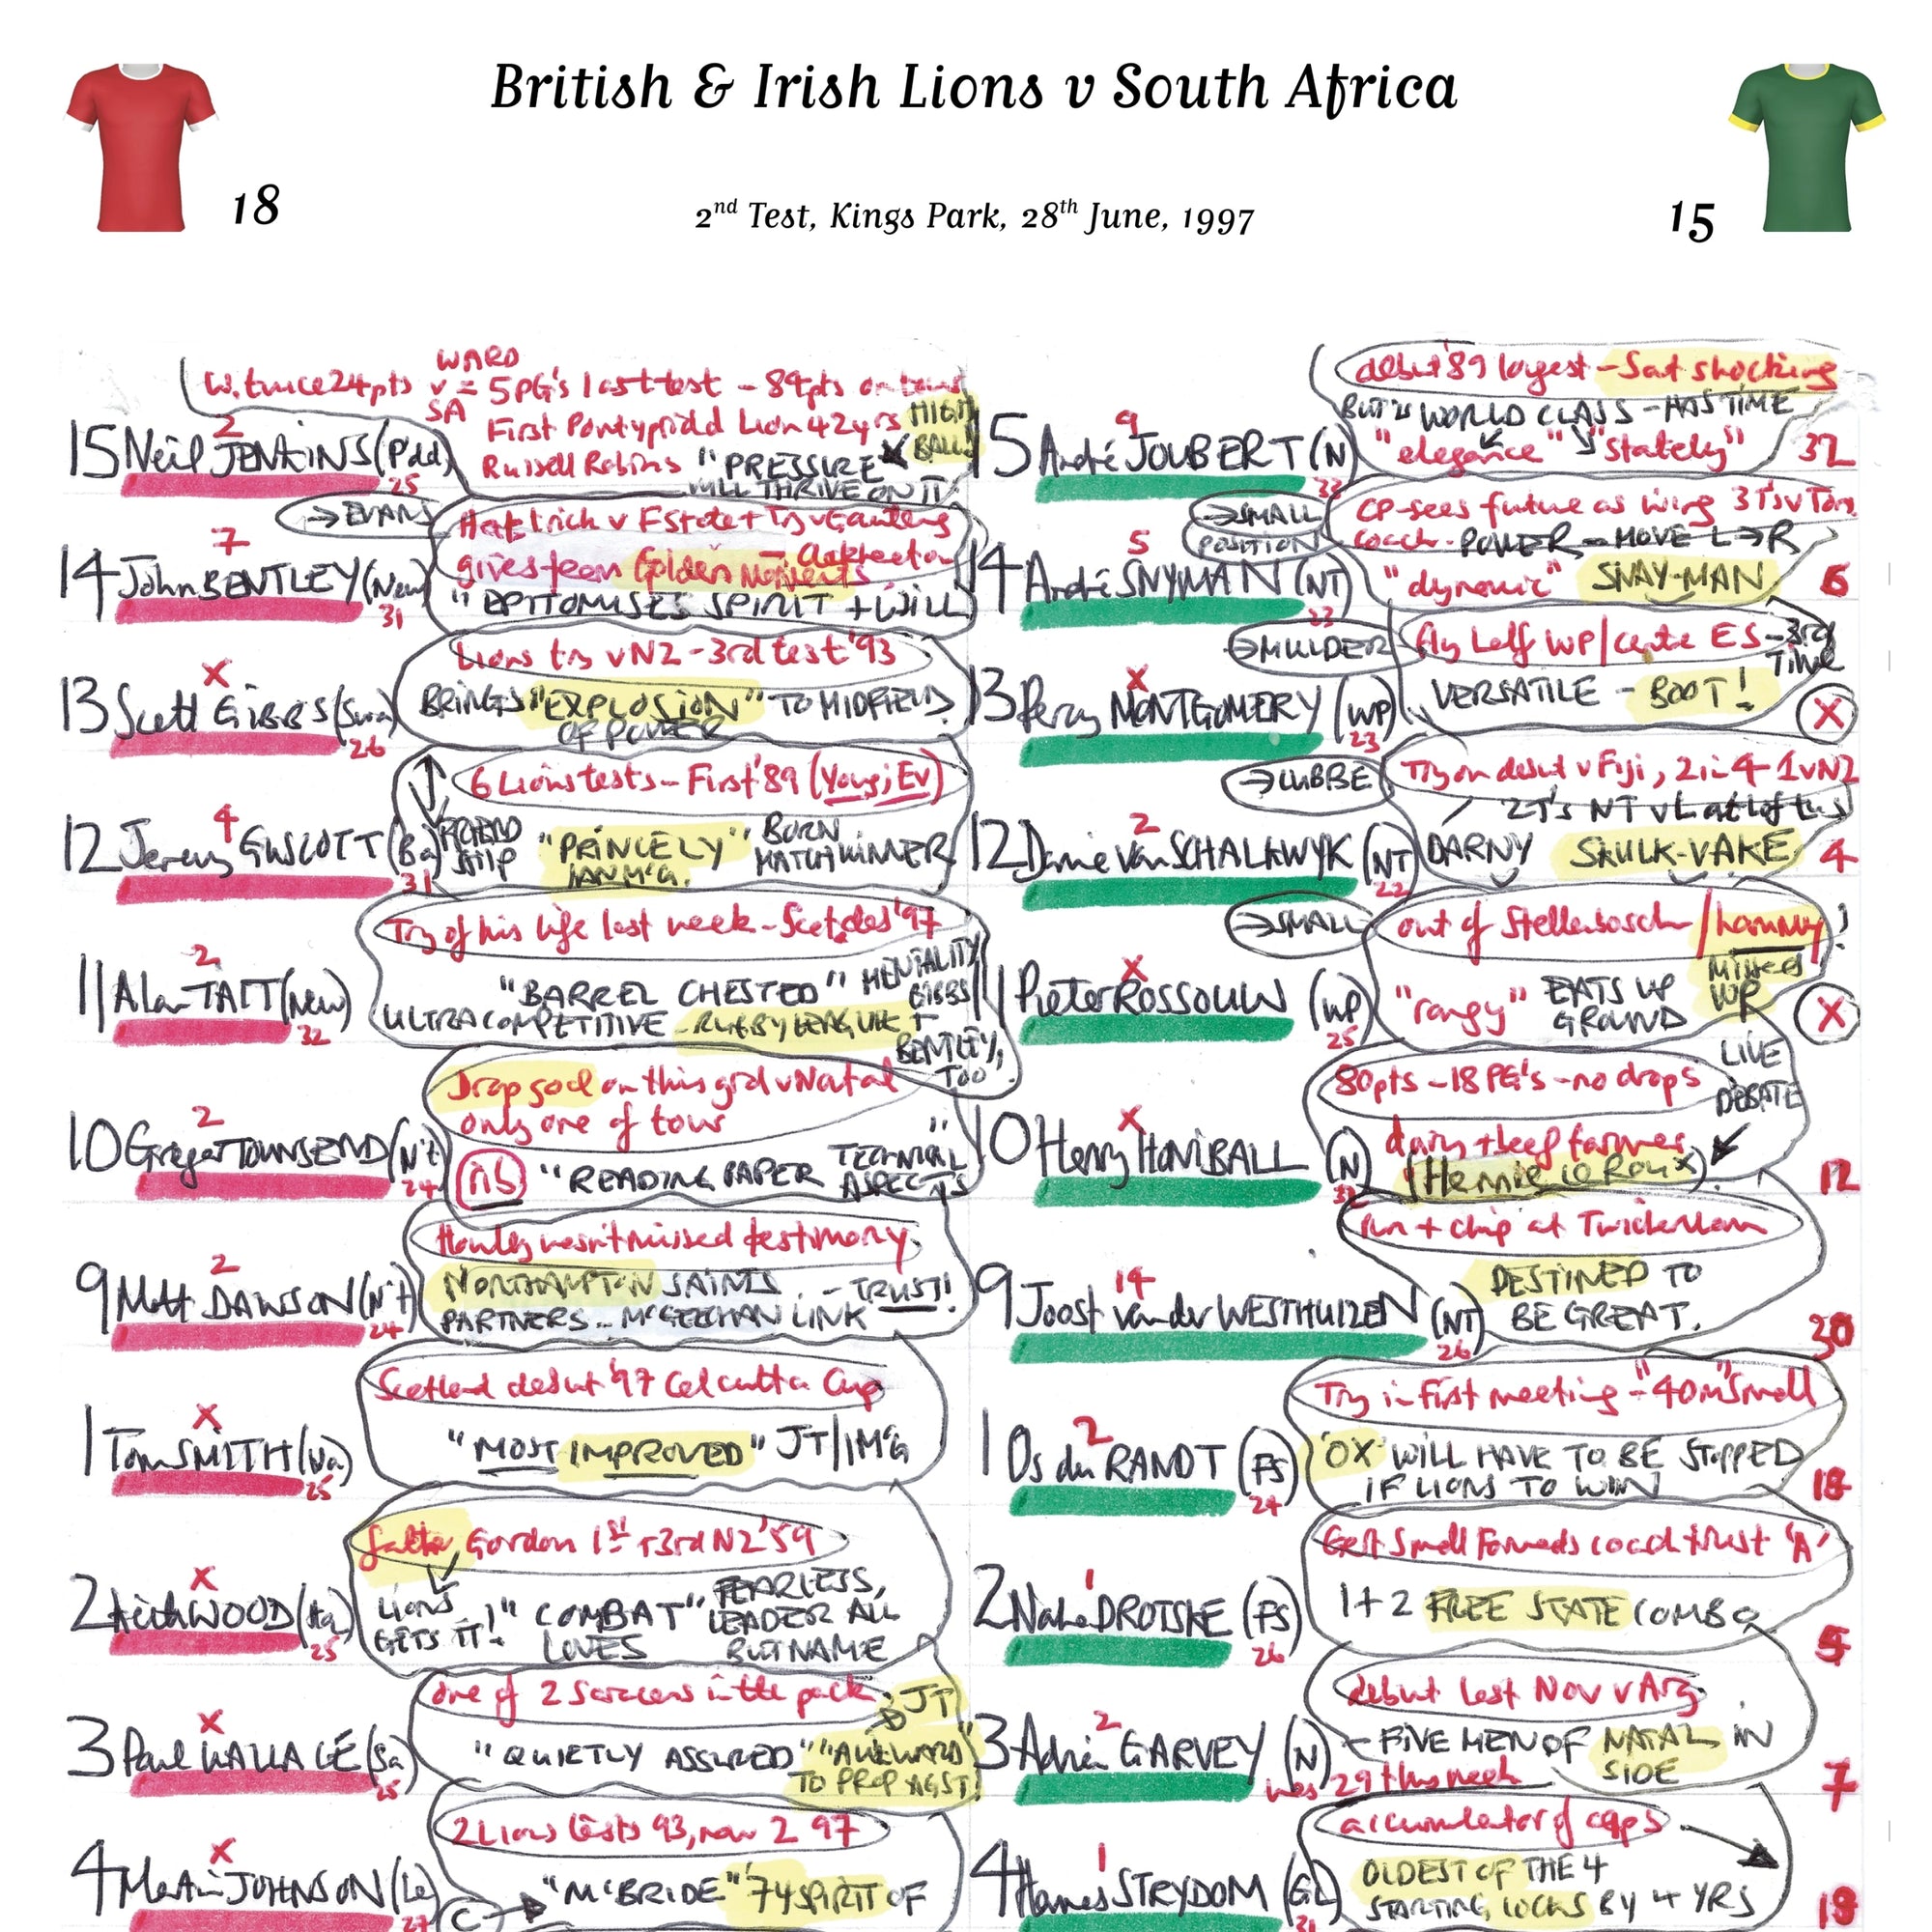 British & Irish Lions v South Africa
18
15
2nd Test, Kings Park, 28th June, 1997
WARD
W. twice 24pts v = 5PG's last test - 84pts on
SA
2
First Pontypridd Lion 42yrs
HIGH BALL!
15 Neil JENKINS (P'dd)
Russell Robins "PRESSURE
WILL THRIVE ON IT
25
→ EVANS
7
Hat trick v F State + Try v Gauteng
gives team Golden Moments
14 John BENTLEY (New)
"EPITOMISES SPIRIT + WILL
31
Lions try v NZ - 3rd test '93
X
13 Scott GIBBS (Swa)
BRINGS "EXPLOSION" TO MIDFIELD
OF POWER
26
6 Lions tests - First '89
4
12 Jeremy GUSCOTT (Ba)
FRIEND SHIP
"PRINCELY"
IAN McG.
BORN MATCHWINNER
31
Try of his life last week - Scot des '97
2
11 Alan TAIT (New)
"BARREL CHESTED" MENTALITY
ULTRA COMPETITIVE - RUGBY LEAGUE
GIBBS +
BENTLEY, TOO
32
Drop goal on this grd v Natal
only one of tour
2
10 Gregor TOWNSEND (N't)
nb
"READING PAPER
TECHNICAL ASPECTS
24
Howley wasn't missed testimony
2
9 Matt DAWSON (N't)
NORTHAMPTON SAINTS - TRUST!
PARTNERS .. McGEECHAN LINK
24
Scotland debut '97 Calcutta Cup
X
1 Tom SMITH (Wa)
"MOST IMPROVED" JT/IMG
25
father Gordon 1st + 3rd NZ '59
X
2 Keith WOOD (Ha)
LIONS GETS IT!
"COMBAT" LOVES
FEARLESS, LEADER ALL BUT NAME
25
One of 2 Saracens in the pack
JT
X
3 Paul WALLACE (Sa)
"QUIETLY ASSURED" "AWKWARD"
TO PROP AGST
25
2 Lions tests 93, now 2 97
X
4 Martin JOHNSON (Le)
C
"McBRIDE" '74 SPIRIT OF
27
debut '89 longest - Sat shocking
BUT IS WORLD CLASS - HAS TIME
9
15 André JOUBERT (N)
"elegance" "stately"
32
33
→ SMALL
POSITION
CP-sees future as wing 3T's v Ton
coach - POWER - MOVE L→R
5
14 André SNYMAN (NT)
"dynamic" SNAY-MAN
6
23
→ MULDER
fly half WP / centre ES - 3rd TIME
X
13 Percy MONTGOMERY (WP)
VERSATILE - BOOT!
X
23
→ LUBBE
Try on debut v Fiji, 2 in 4 - 1 v NZ
2T's NT v L at Loftus
2
12 Danie Van SCHALKWYK (NT)
DARNY SKULK-VAKE
4
22
→ SMALL
out of Stellenbosch / hammy!
MISSED WP
X
11 Pieter ROSSOUW (WP)
"rangy" EATS UP GROUND
X
25
80pts - 18 PG's - no drops
LIVE DEBATE
X
10 Henry HONIBALL (N)
dairy + beef farmer
(Hennie le Roux)
12
run + chip at Twickenham
14
9 Joost van der WESTHUIZEN (NT)
DESTINED TO
BE GREAT.
30
26
Try in first meeting - "40m" Small
2
1 Os du RANDT (FS)
'OX' WILL HAVE TO BE STOPPED
IF LIONS TO WIN
18
24
Gert Small Forwards coach trust 'A'
1
2 Naka DROTSKE (FS)
1+2 FREE STATE COMBO
5
26
debut last Nov v Arg
2
3 Adrian GARVEY (N)
- FIVE MEN OF NATAL IN
SIDE
was 29 this week
7
accumulator of caps
1
4 Hannes STRYDOM (GL)
OLDEST OF THE 4
STARTING LOCKS BY 4 YRS
18
31